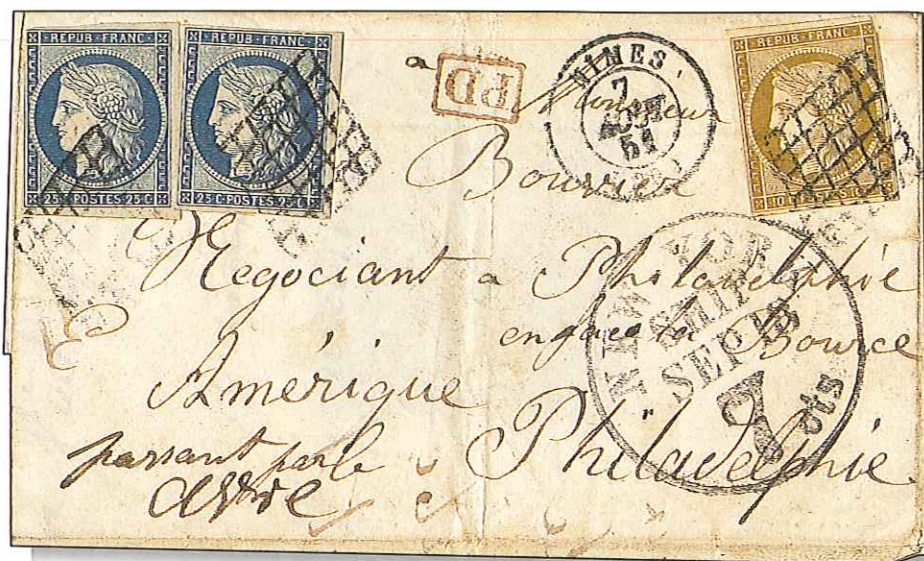 REPUB·FRANC·
25·C·POSTES·25·C
REPUB·FRANC·
25·C·POSTES·25·C
PD
NIMES
7
AOUT
51
REPUB·FRANC·
10·C·POSTES·10·C
a Monsieur
Bouvier
Negociant a Philadelphie
en face la Bource
Amérique
passant par le
Philadelphie
NEW YORK
SHIP
SEP 13
7 cts